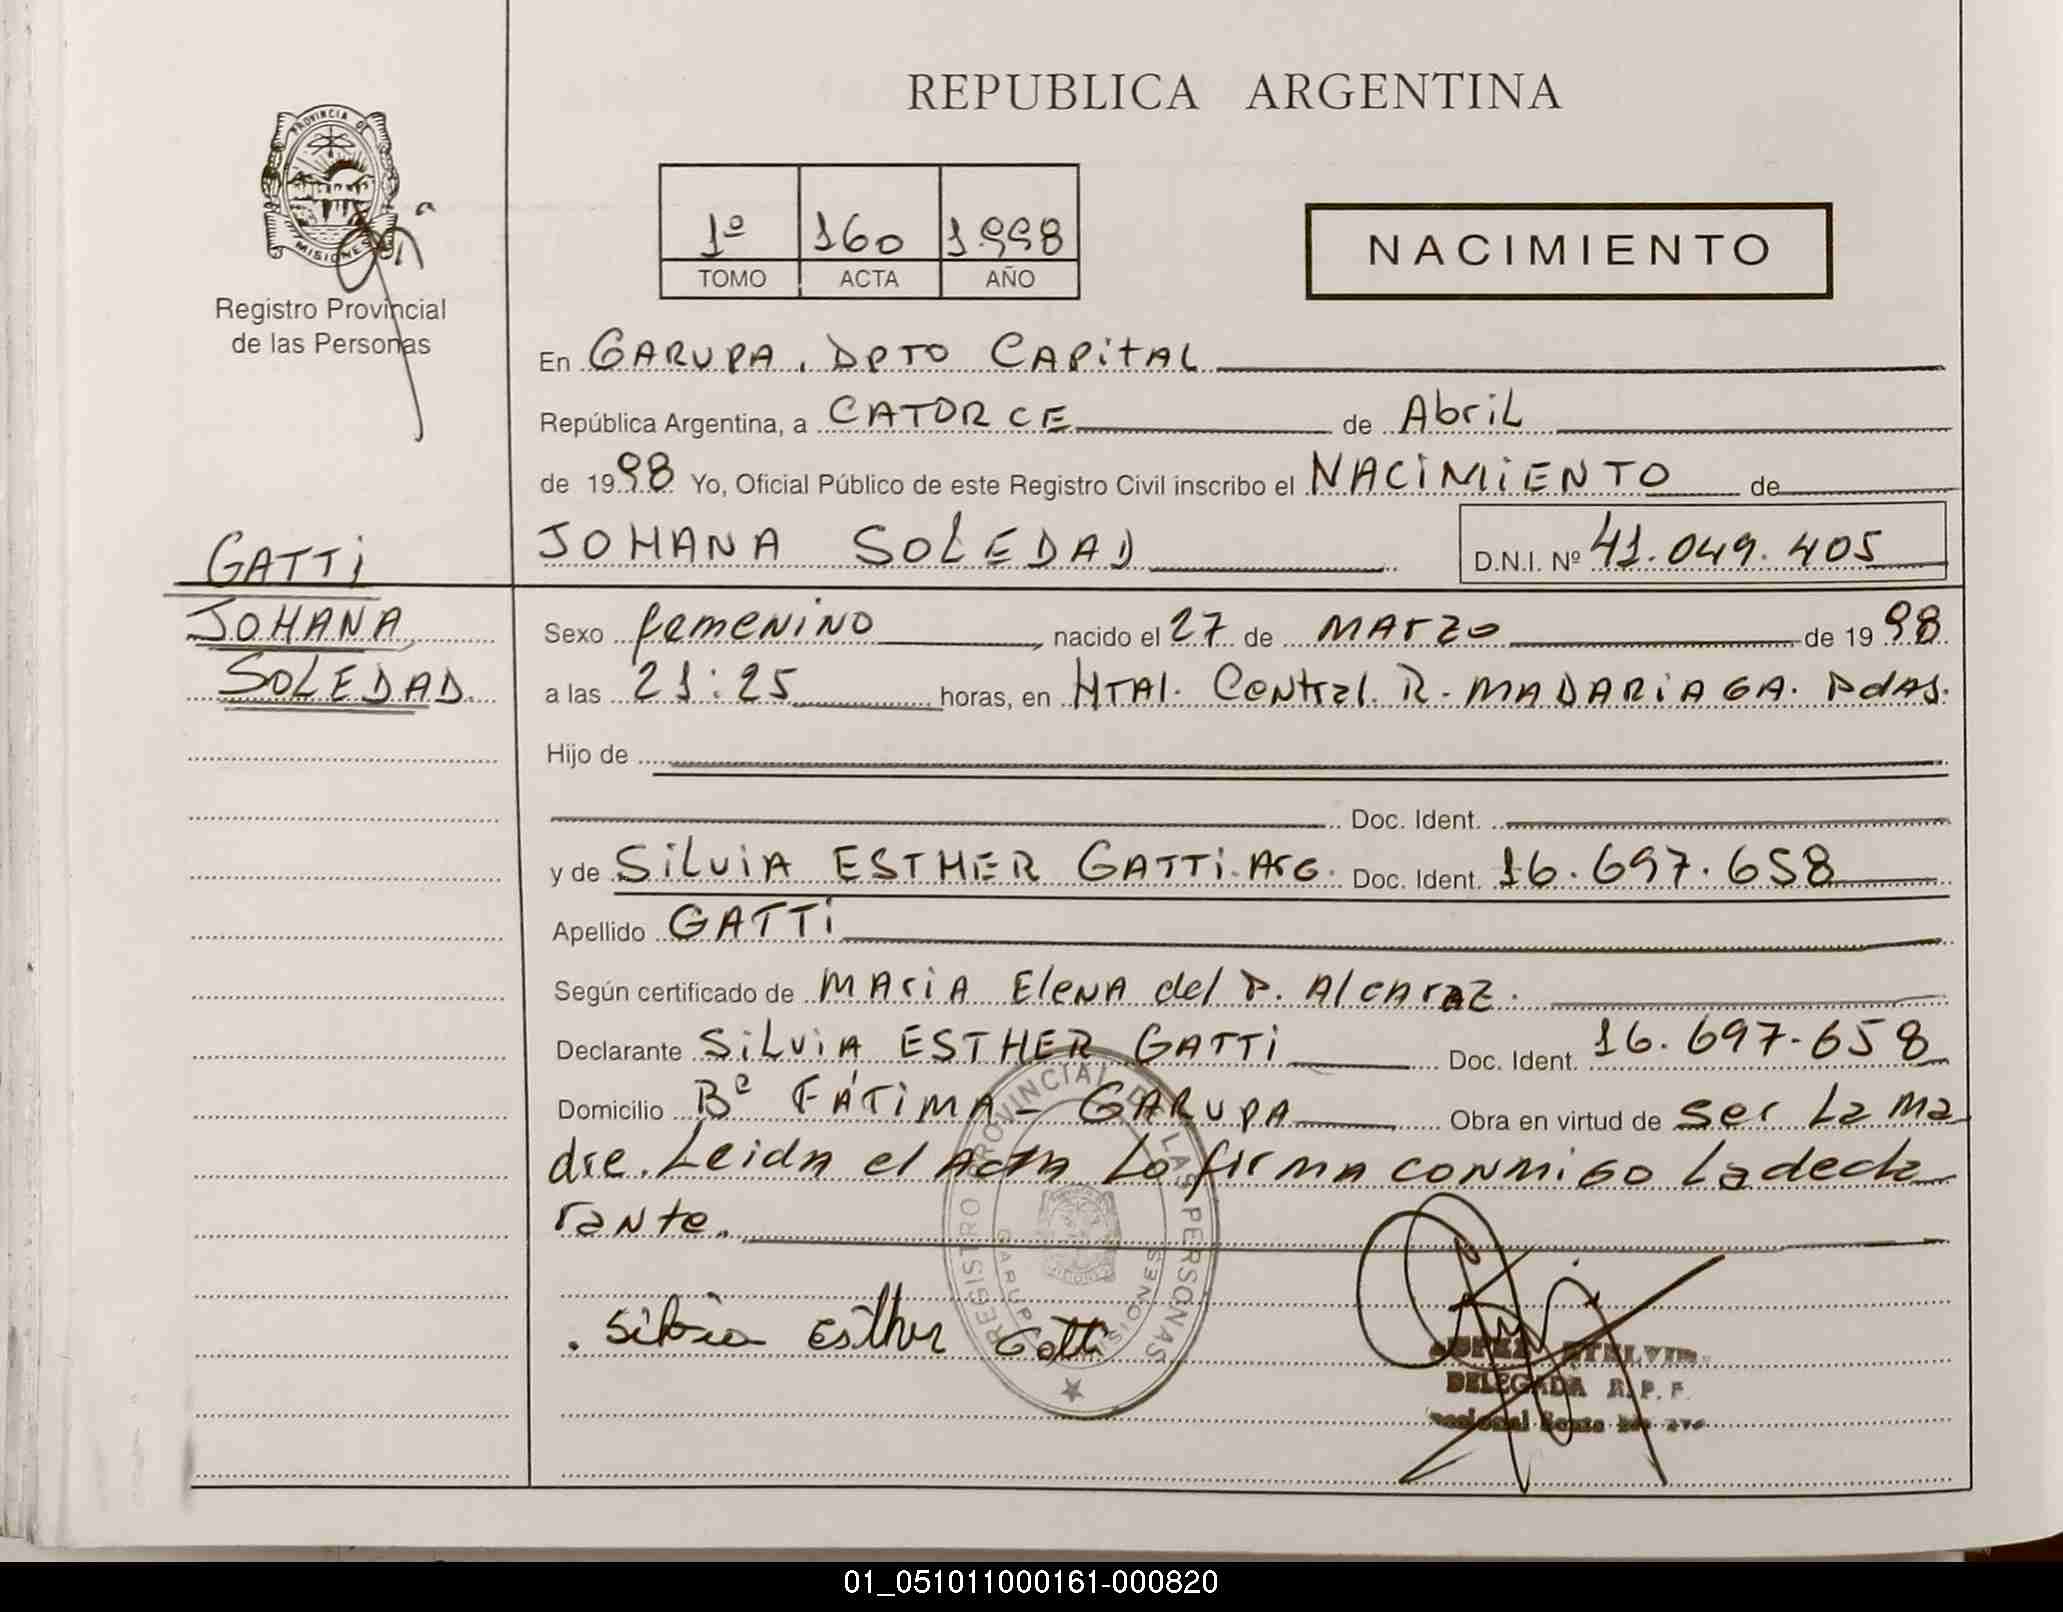 REPUBLICA ARGENTINA
PROVINCIA DE
MISIONES
Registro Provincial
de las Personas
1º 160 1998
TOMO ACTA AÑO
NACIMIENTO
En GARUPA. DPTO CAPiTAL
República Argentina, a CATORCE de AbriL
de 1998 Yo, Oficial Público de este Registro Civil inscribo el NACiMiENTO de
GATTi
JOHANA SOLEDAD D.N.I. Nº 41.049.405
JOHANA
SOLEDAD.
Sexo femeNiNO, nacido el 27 de MArzo de 1998
a las 21:25 horas, en HTAl. CeNtral. R. MADARiAGA. PdAs.
Hijo de
Doc. Ident.
y de SiLViA ESTHER GATTi. ArG. Doc. Ident. 16.697.658
Apellido GATTi
Según certificado de MAriA EleNA del P. AlcArAz.
Declarante SiLViA ESTHER GATTi Doc. Ident. 16.697.658
Domicilio Bº FÁTiMA - GARUPA Obra en virtud de ser La ma
dre. Leida el Acta Lo firma conmigo La decla
rante.
REGISTRO PROVINCIAL DE LAS PERSONAS
GARUPA MISIONES
Silvia Esther Gatti
DELEGADA R.P.P.
01_051011000161-000820